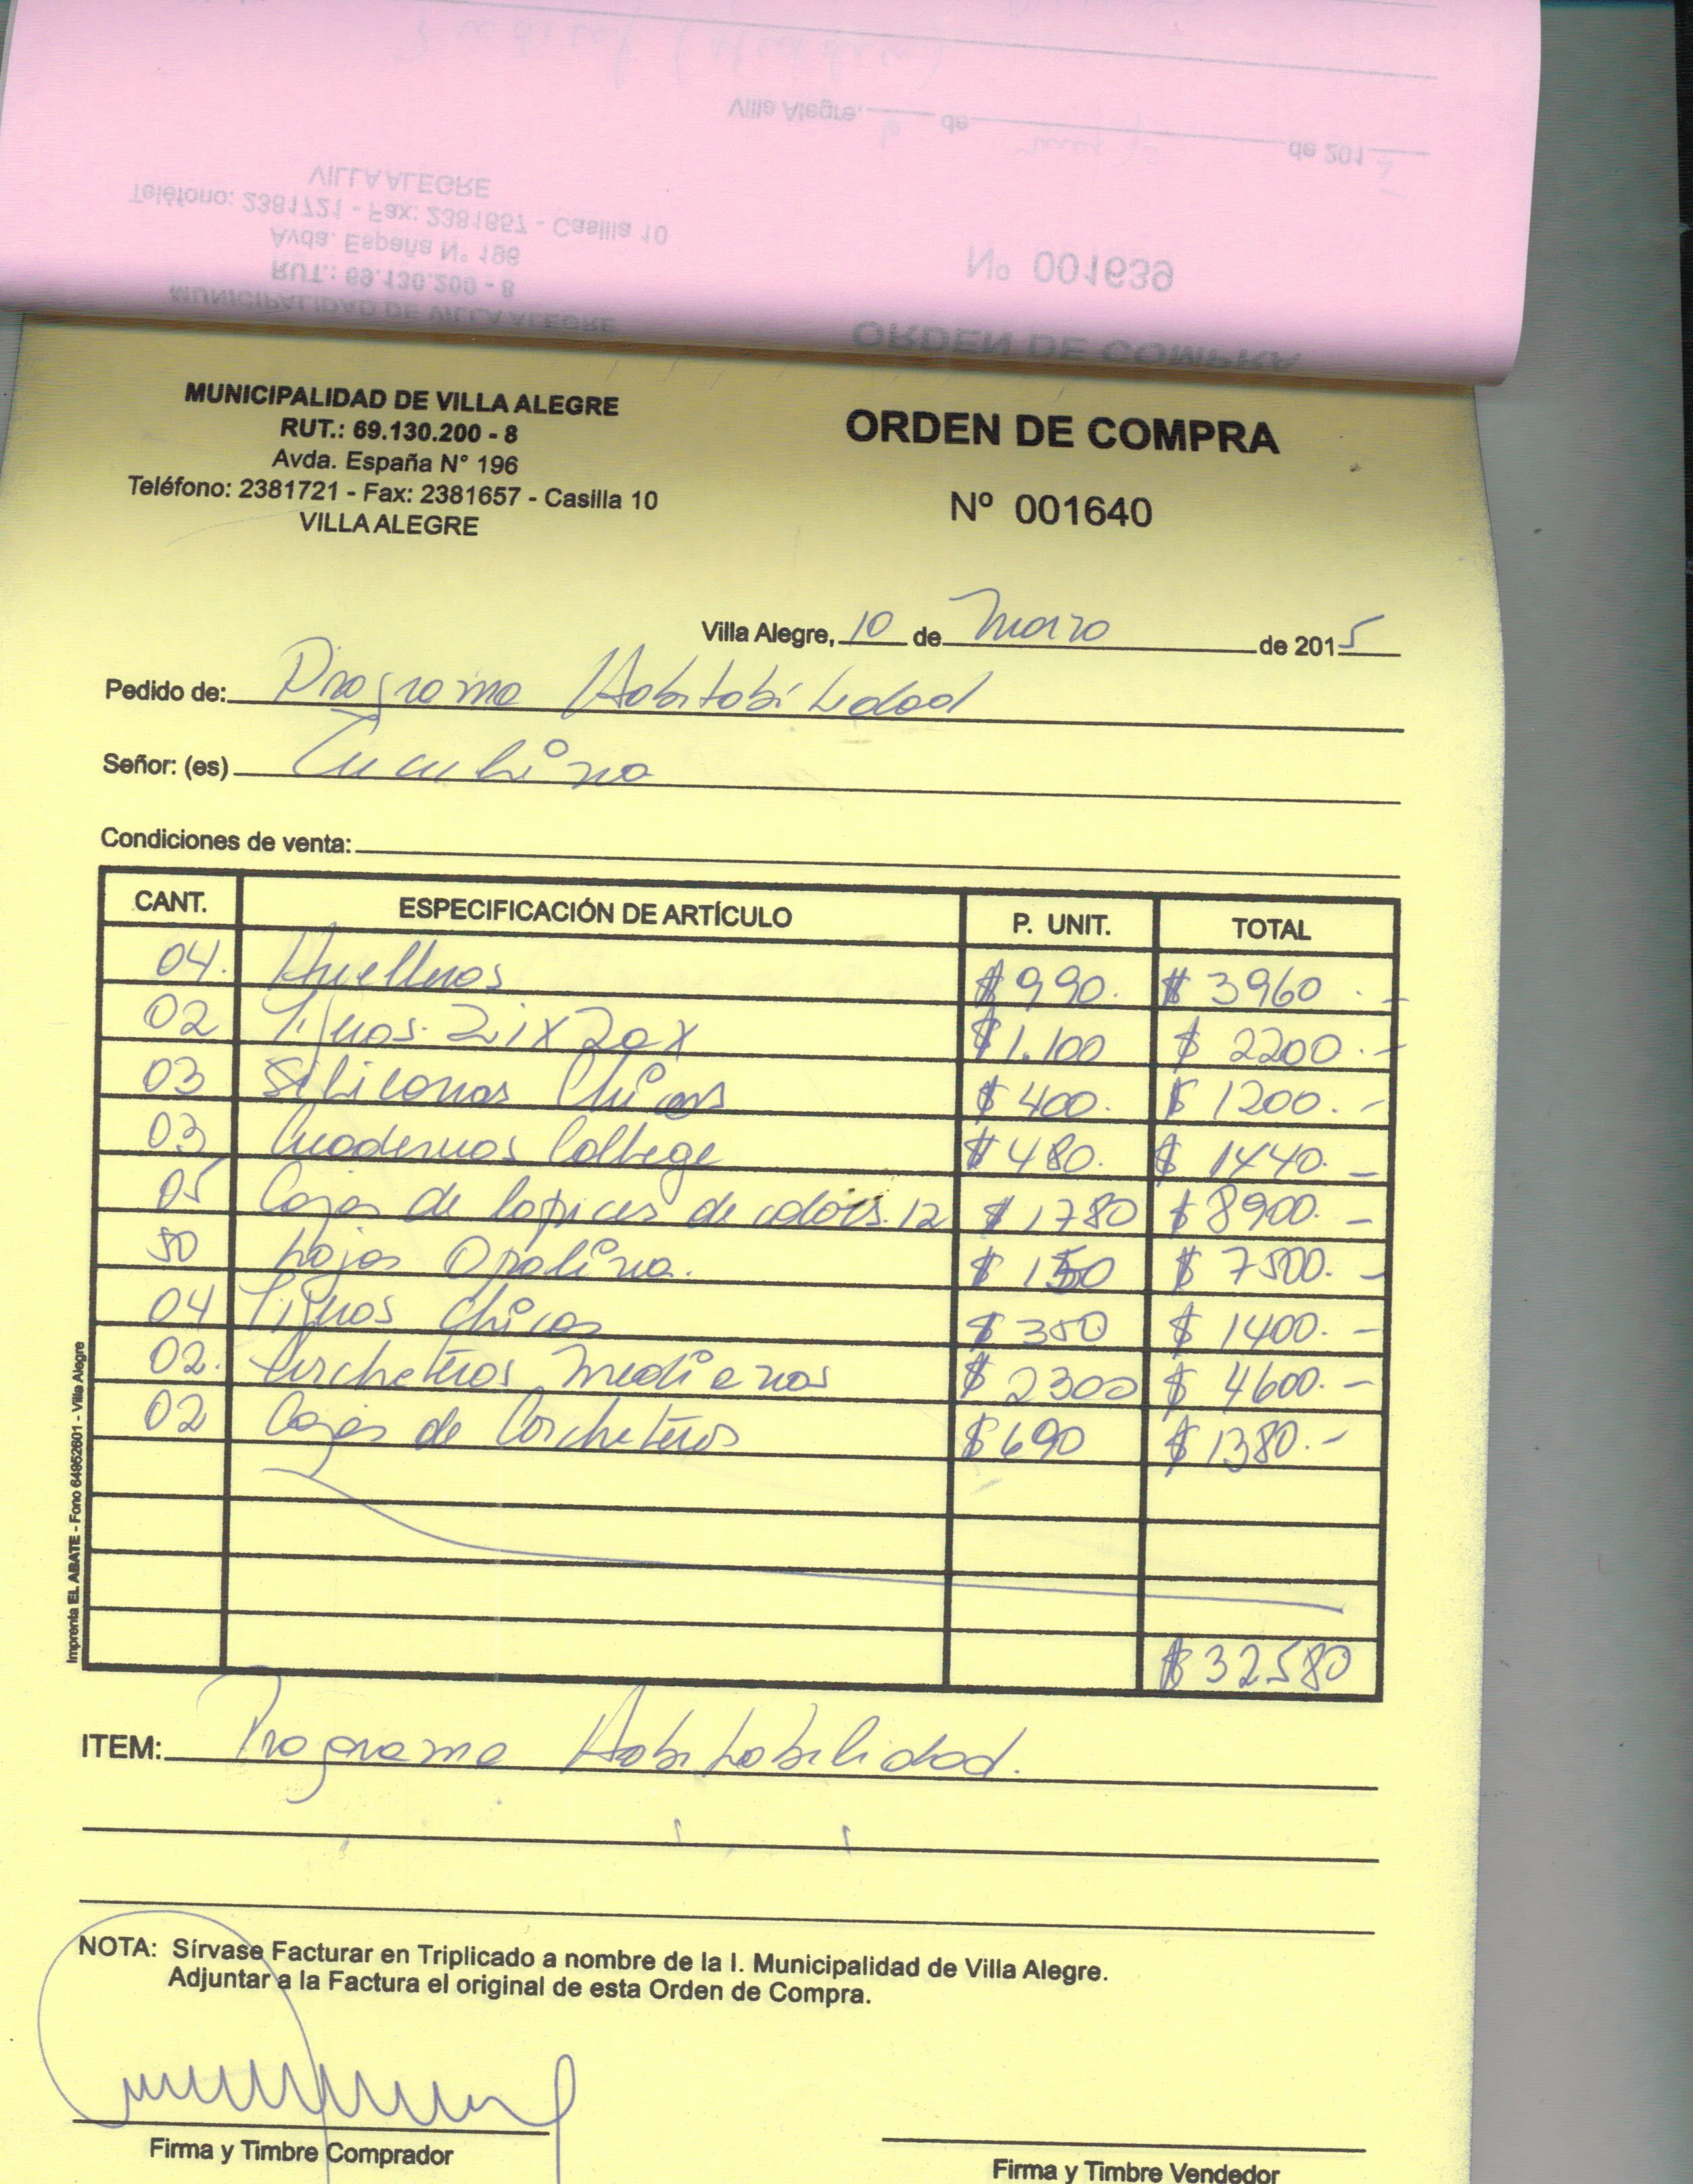 MUNICIPALIDAD DE VILLA ALEGRE
RUT.: 69.130.200 - 8
Avda. España N° 196
Teléfono: 2381721 - Fax: 2381657 - Casilla 10
VILLA ALEGRE
ORDEN DE COMPRA
Nº 001640
Villa Alegre, 10 de Marzo de 2015
Pedido de: Programa Habitabilidad
Señor: (es)
Condiciones de venta:
CANT. ESPECIFICACIÓN DE ARTÍCULO P. UNIT. TOTAL
04. $ 990. $ 3960.-
02 Tijeras Zix Zax $ 1.100 $ 2200.-
03 Siliconas Chicas $ 400. $ 1200.-
03 Cuadernos College $ 480. $ 1440.-
05 Cajas de lapices de colores. 12 $ 1780 $ 8900.-
50 hojas Opalina. $ 150 $ 7500.-
04 Tijeras Chicas $ 350 $ 1400.-
02. Corcheteras Medianas $ 2300 $ 4600.-
02 Cajas de Corcheteras $ 690 $ 1380.-
$ 32580
ITEM: Programa Habitabilidad.
NOTA: Sírvase Facturar en Triplicado a nombre de la I. Municipalidad de Villa Alegre.
Adjuntar a la Factura el original de esta Orden de Compra.
Firma y Timbre Comprador
Firma y Timbre Vendedor
Imprenta EL ABATE - Fono 64952601 - Villa Alegre
ORDEN DE COMPRA
Nº 001639
MUNICIPALIDAD DE VILLA ALEGRE
RUT.: 69.130.200 - 8
Avda. España N° 196
Teléfono: 2381721 - Fax: 2381657 - Casilla 10
VILLA ALEGRE
Villa Alegre, de de 201